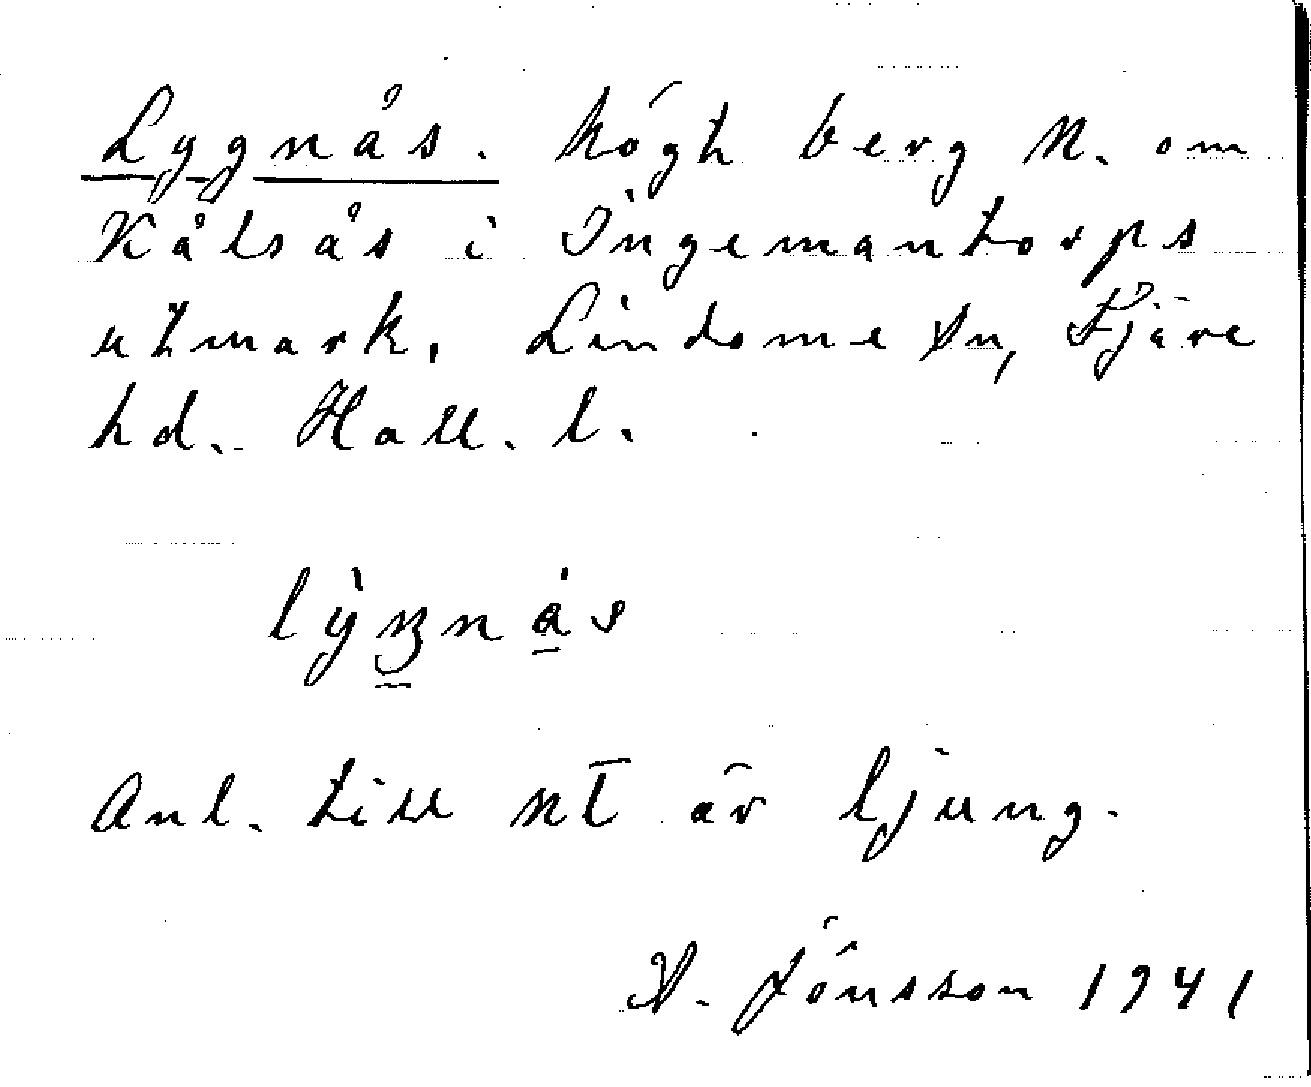 Lygnås. högt berg N. om
Kålsås i Ingemantorps
utmark, Lindome sn, Fjäre
hd. Hall. l.
Anl. till nt är ljung.
Jönsson 1941